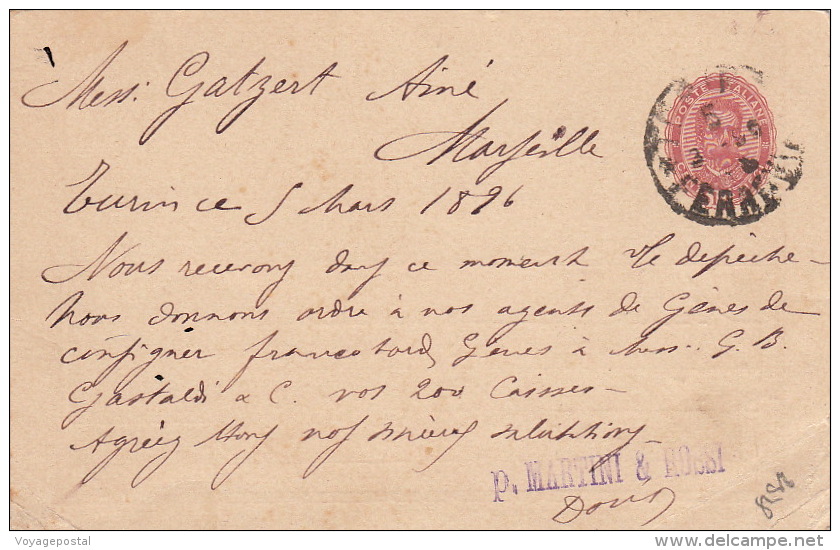 Mess: Gatzert Ainé
Marseille
Turin ce 5 Mars 1896
POSTE ITALIANE
FERROVIA
Nous recevons dans ce moment v/e depêche—
Nous donnons ordre à nos agents de Gênes de
consigner franco bord Gênes à Mess. G. B.
Gastaldi & C. vos 200 Caisses—
Agréez Mons nos sincères salutations
p. MARTINI & ROSSI
Voyagepostal
delcampe.net